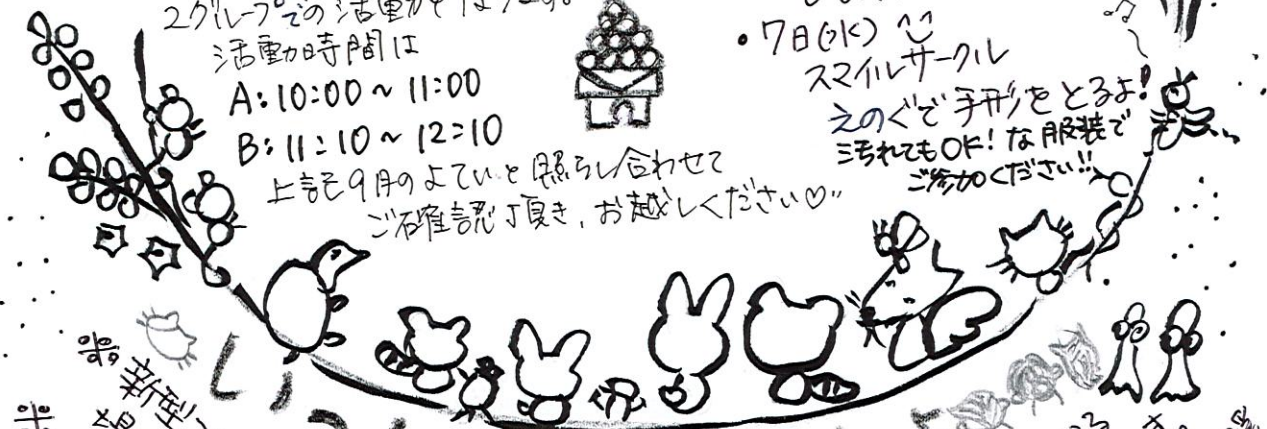 2グループでの活動か
活動時間は
A:10:00~11:00
B:11:10~12:10
上記9月のよていと照らし合わせて
ご確認頂き、お越しください♡
・7日(水)
スマイルサークル
えのぐで手形をとるよ!
汚れてもOK!な服装で
ご参加ください!!
※
新型
※